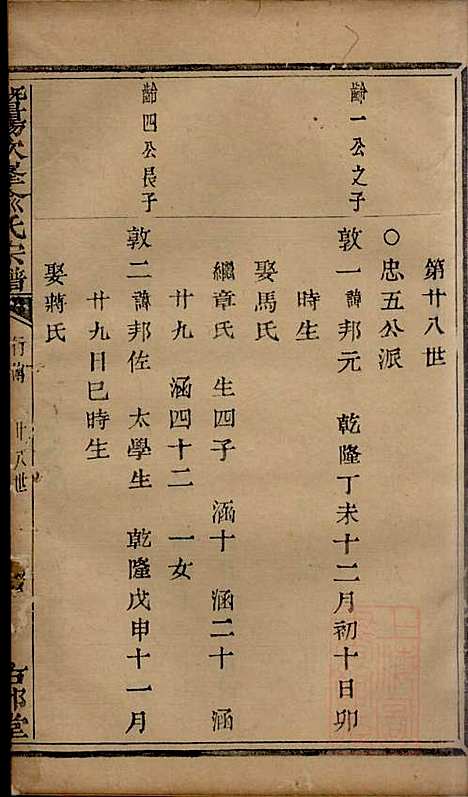 第廿八世
○忠五公派
齡一公之子
敦一諱邦元 乾隆丁未十二月初十日卯
時生
娶馬氏
繼章氏 生四子 涵十 涵二十 涵
廿九 涵四十二 一女
齡四公長子
敦二諱邦佐 太學生 乾隆戊申十一月
廿九日巳時生
娶蔣氏
暨陽次峯俞氏宗譜
行 廿八世